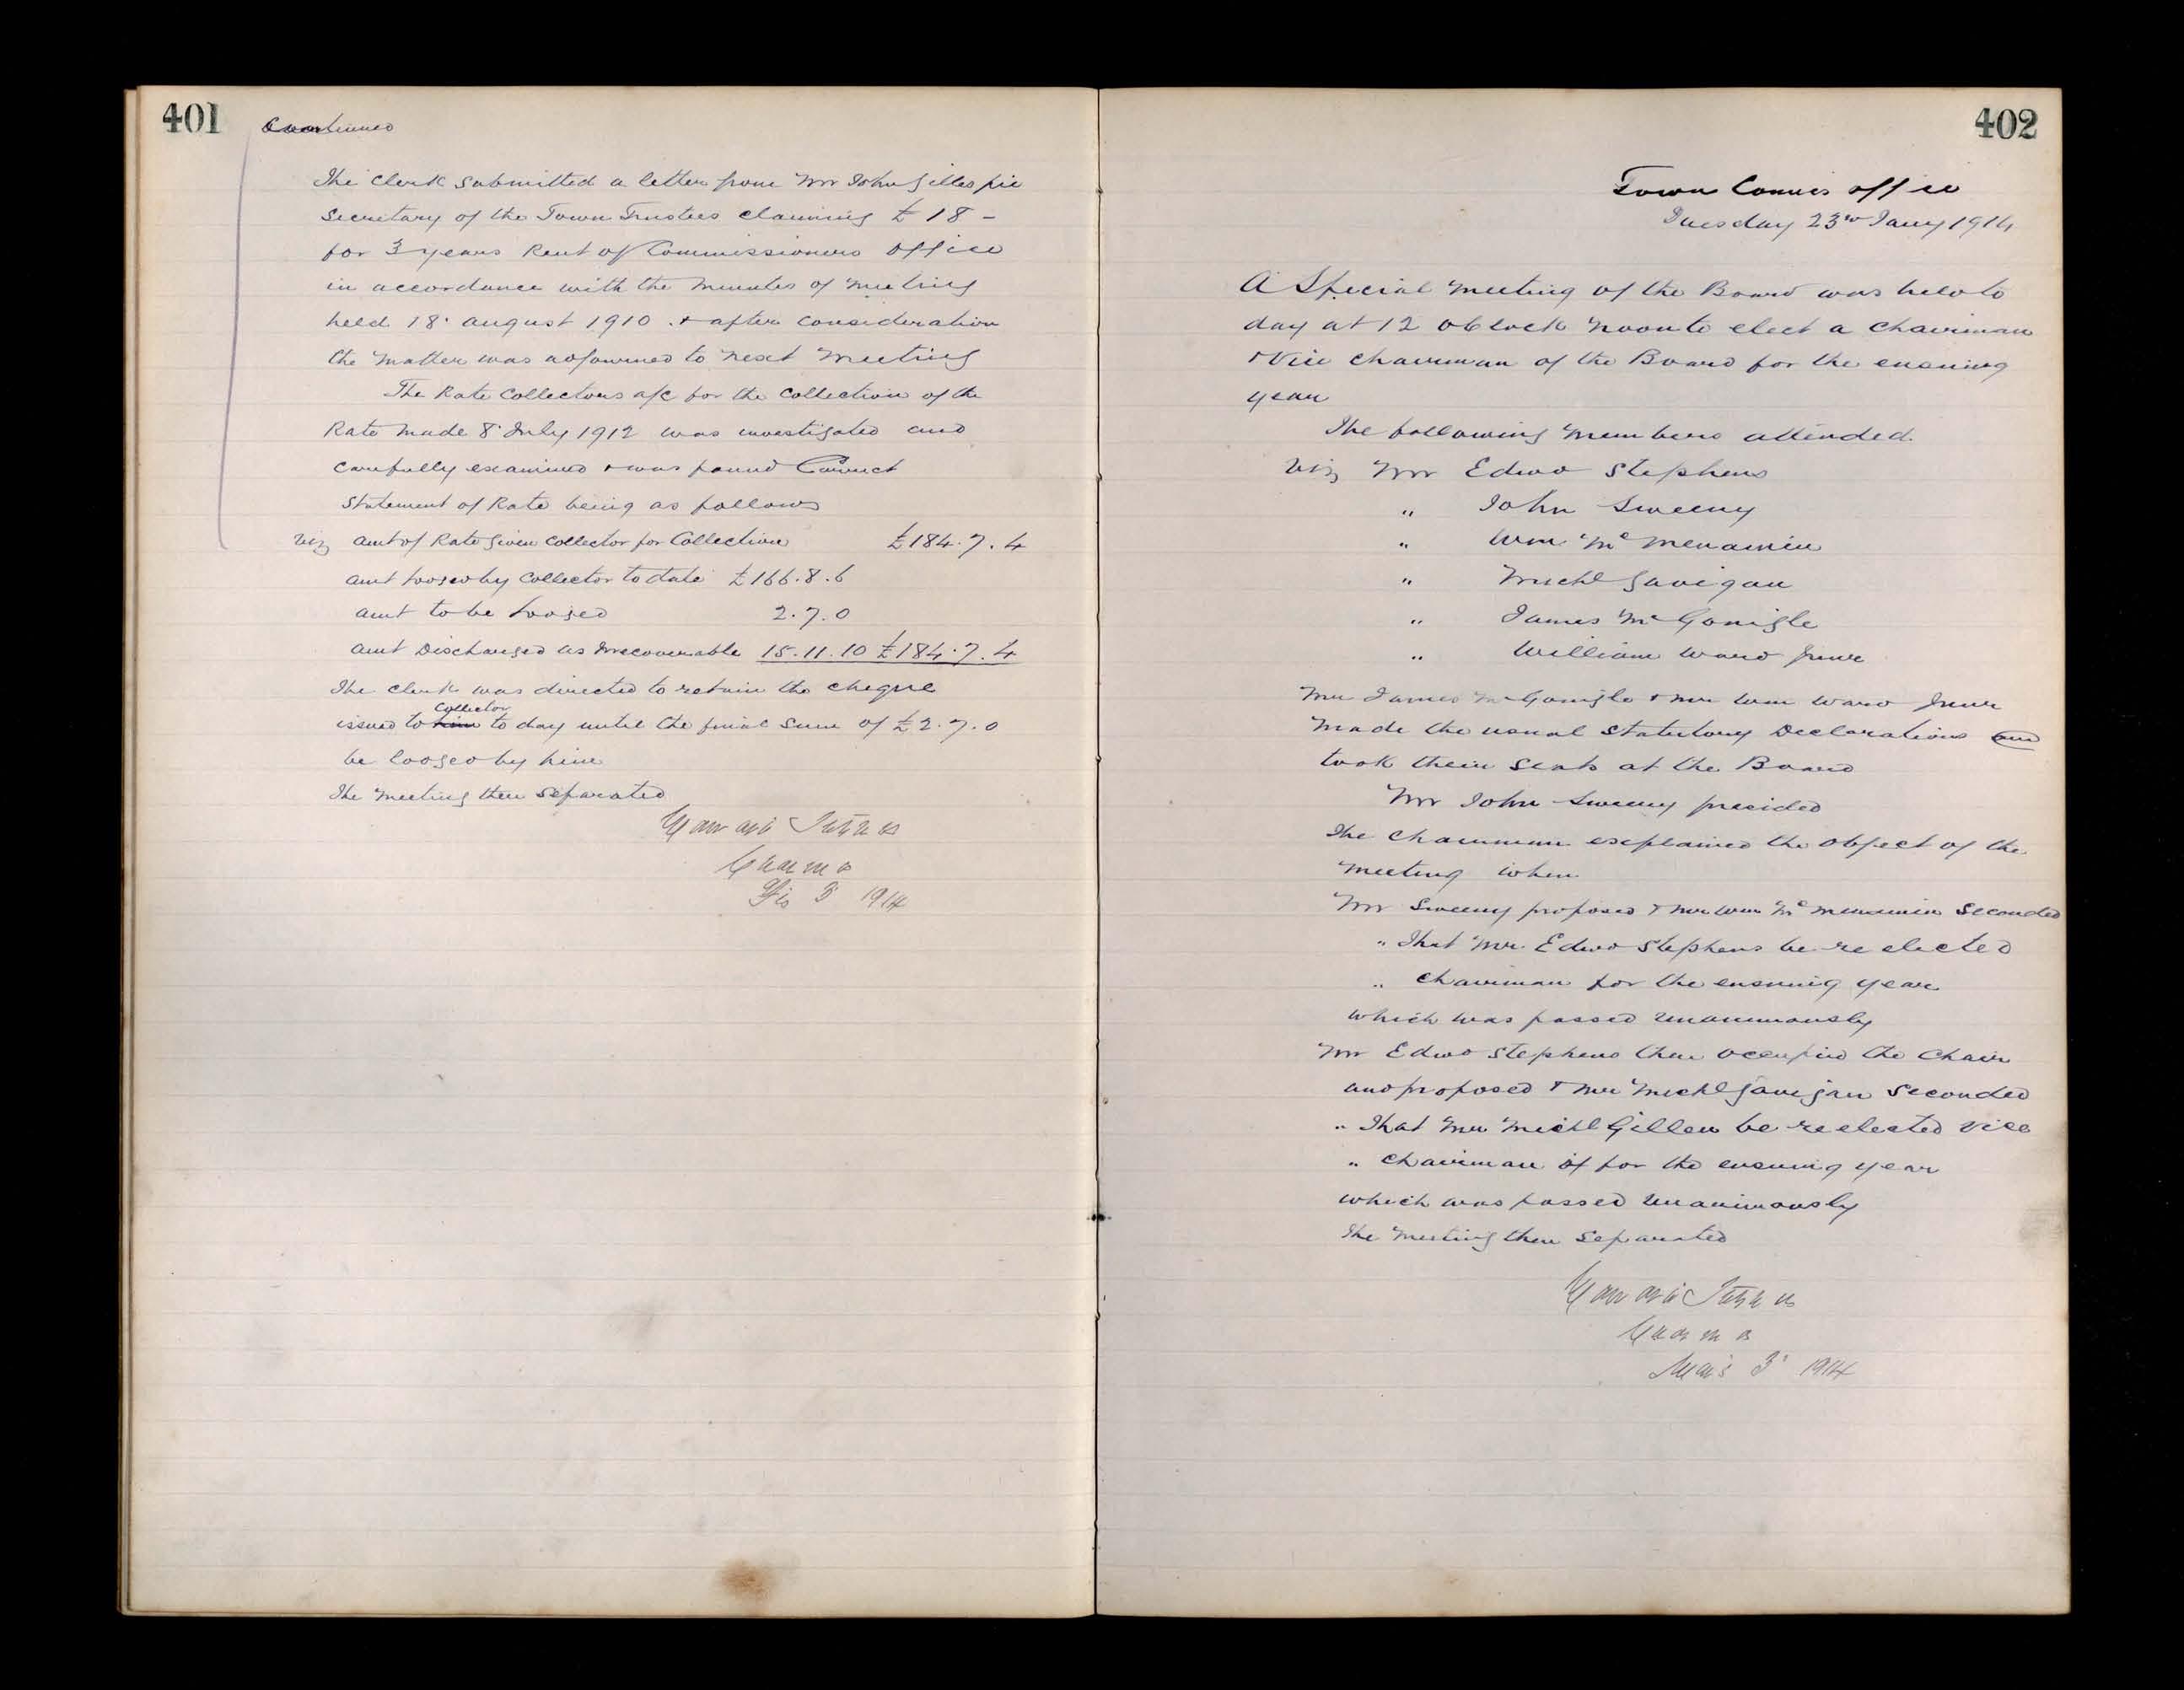 401
Continued
The Clerk submitted a letter from Mr John Gillespie
Secretary of the Town Trustees claiming £18 -
for 3 years Rent of Commissioners Office
in accordance with the Minutes of Meeting
held 18' August 1910 . & after Consideration
the Matter was adjourned to next Meeting
The Rate Collectors a/c for the Collection of the
Rate Made 8' July 1912 was investigated and
Carefully examined & was found Correct
Statement of Rate being as follows
Viz Amt of Rate Given Collector for Collection £184.7.4
Amt Lodged by Collector to date £166.8.6
Amt to be Lodged 2.7.0
Amt Discharged as Irrecoverable 15.11.10 £184.7.4
The Clerk was directed to retain the cheque
Collector
issued to him to day until the final Sum of £2.7.0
be lodged by him
The Meeting then Separated
3 1914
402
Town Commrs Office
Tuesday 23rd Jany 1914
A Special Meeting of the Board was held to
day at 12 oClock Noon to elect a Chairman
& Vice Chairman of the Board for the ensuing
year
The following Members attended.
Viz Mr Edwd Stephens
" John Sweeny
" Wm Mc Menamin
" Michl Gavigan
" James Mc Gonigle
" William Ward Junr
Mr James Mc Gonigle & Mr Wm Ward Junr
Made the usual Statutory Declarations and
took their Seats at the Board
Mr John Sweeny presided
The Chairman explained the object of the
Meeting when
Mr Sweeny proposed & Mr Wm Mc Menamin Seconded
" That Mr Edwd Stephens be re elected
" Chairman for the ensuing year
which was passed Unanimously
Mr Edwd Stephens then occupied the Chair
and proposed & Mr Michl Gavigan Seconded
" That Mr Michl Gillen be re elected Vice
" Chairman of for the ensuing year
which was passed Unanimously
The Meeting then Separated
3' 1914